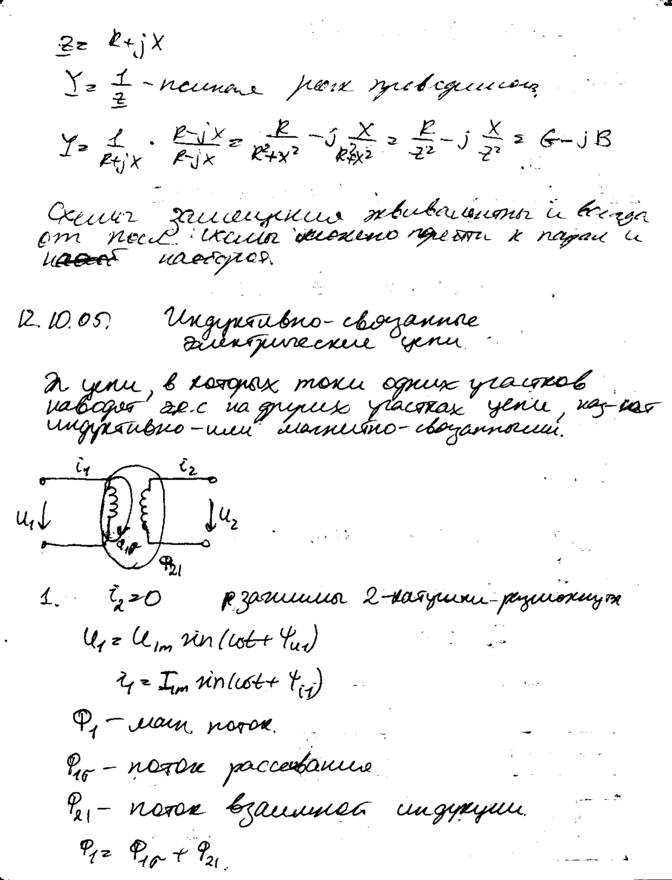 Z = R+jX
Y = 1/Z - полная проводимость
Y = 1/(R+jX) · (R-jX)/(R-jX) = R/(R²+X²) - j X/(R²+X²) = R/Z² - j X/Z² = G-jB
Схемы замещения эквивалентны и всегда
от посл. схемы можно прейти к парал и
наоборот.
12.10.05. Индуктивно-связанные
электрические цепи.
Эл цепи, в которых токи одних участков
наводят э.д.с на других участках цепи, наз-ют
индуктивно-или магнитно-связанными.
i1 i2
u1 u2
Φ1σ
Φ21
1. i2=0 зажимы 2-катушки-разомкнуты
u1 = U1m sin(ωt+ψu1)
i1 = I1m sin(ωt+ψi1)
Φ1 - магн. поток.
Φ1σ - поток рассеивания
Φ21 - поток взаимной индукции.
Φ1 = Φ1σ + Φ21.